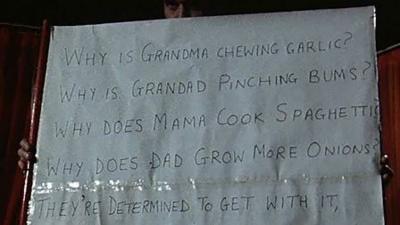 WHY IS GRANDMA CHEWING GARLIC?
WHY IS GRANDAD PINCHING BUMS?
WHY DOES MAMA COOK SPAGHETTI
WHY DOES DAD GROW MORE ONIONS?
THEY'RE DETERMINED TO GET WITH IT,